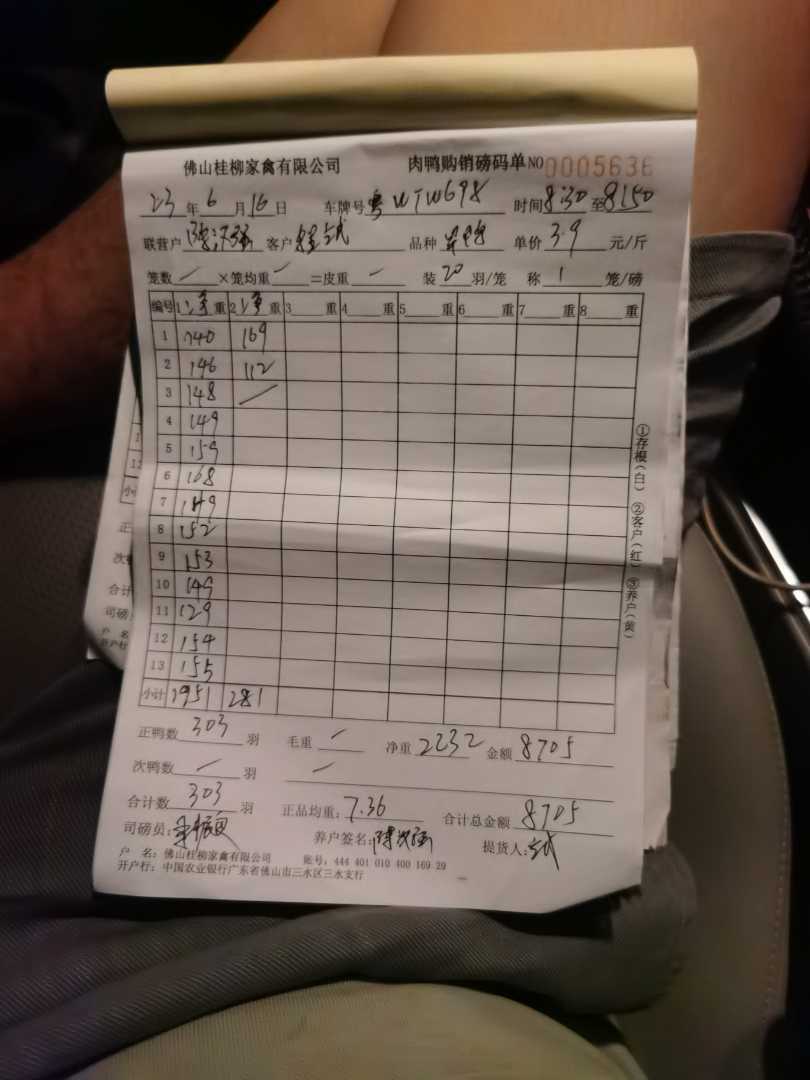 佛山桂柳家禽有限公司 肉鸭购销磅码单 NO 0005636
23 年 6 月 16 日 车牌号 粤WTW698 时间 8:30 至 8:50
联营户 客户 品种 单价 3.9 元/斤
笼数 / ×笼均重 / =皮重 / 装 20 羽/笼 称 1 笼/磅
编号 1 净 重 2 净 重 3 重 4 重 5 重 6 重 7 重 8 重
1 140 169
2 146 112
3 148 /
4 149
5 159
6 168
7 149
8 152
9 153
10 149
11 129
12 154
13 155
小计 1951 281
正鸭数 303 羽 毛重 / 净重 2232 金额 8705
次鸭数 / 羽 /
合计数 303 羽 正品均重: 7.36 合计总金额 8705
司磅员: 养户签名: 提货人:
户 名: 佛山桂柳家禽有限公司 账号: 444 401 010 400 169 29
开户行: 中国农业银行广东省佛山市三水区三水支行
①存根(白) ②客户(红) ③养户(黄)